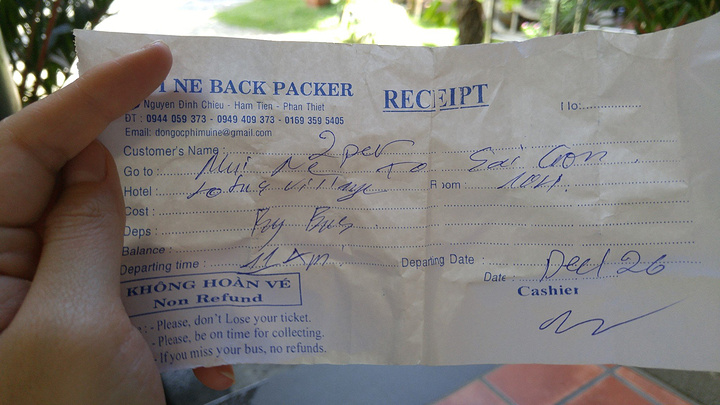 NE BACK PACKER
Nguyen Đình Chieu - Ham Tien - Phan Thiet
ĐT : 0944 059 373 - 0949 409 373 - 0169 359 5405
Email: dongocphimuine@gmail.com
RECEIPT
No:
Customer's Name : 2 per
Go to : Mui Ne To Sai Gon.
Hotel : Lotus village Room :
Cost :
Deps : By Bus
Balance :
Departing time : 11 Am Departing Date :
Date : Dec 26
Cashier
KHÔNG HOÀN VÉ
Non Refund
- Please, don't Lose your ticket.
- Please, be on time for collecting.
- If you miss your bus, no refunds.